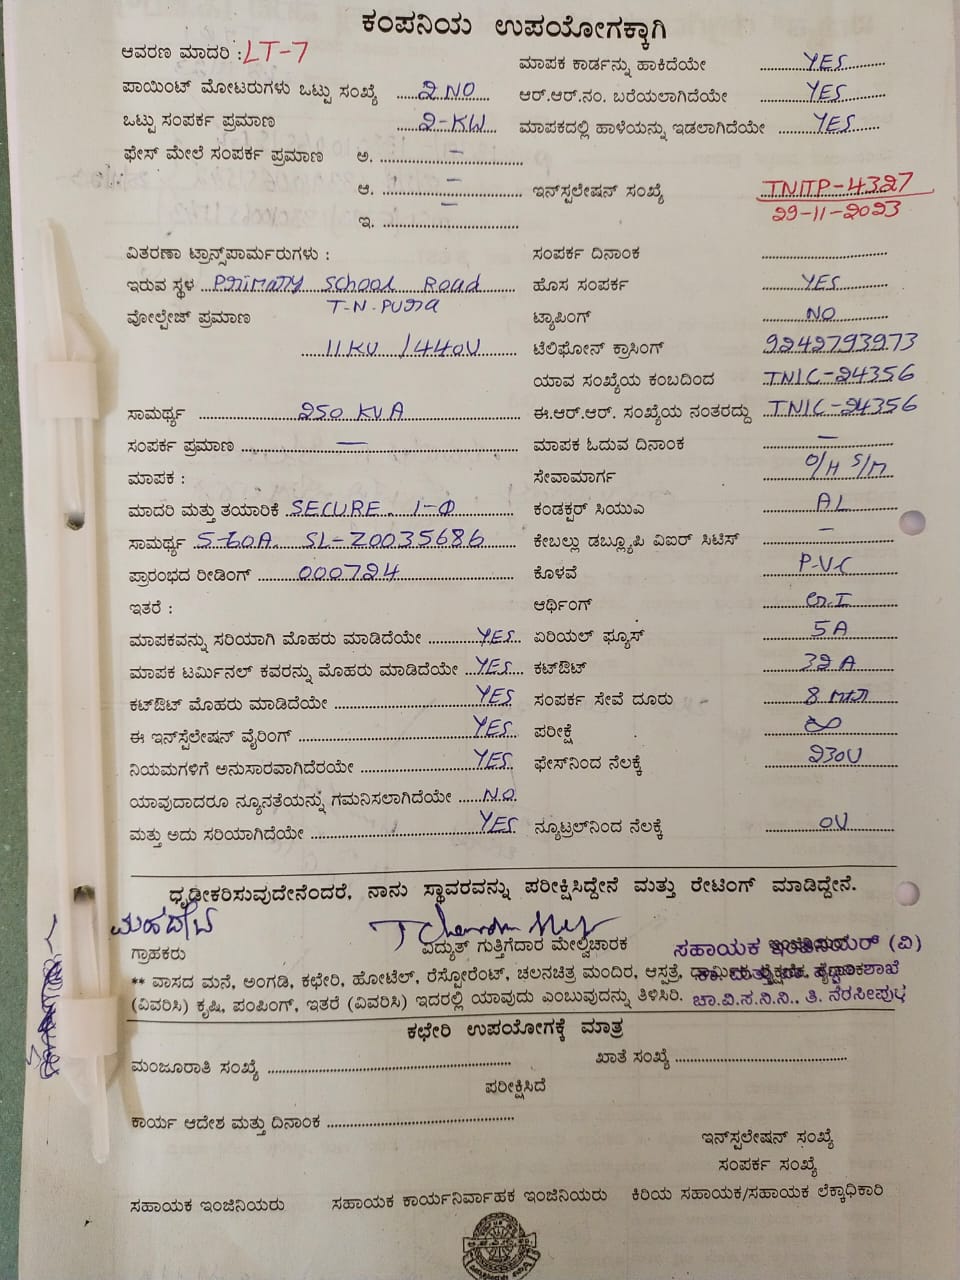 ಕಂಪನಿಯ ಉಪಯೋಗಕ್ಕಾಗಿ
ಆವರಣ ಮಾದರಿ : LT-7 ಮಾಪಕ ಕಾರ್ಡನ್ನು ಹಾಕಿದೆಯೇ YES
ಪಾಯಿಂಟ್ ಮೋಟರುಗಳು ಒಟ್ಟು ಸಂಖ್ಯೆ 2 NO ಆರ್.ಆರ್.ನಂ. ಬರೆಯಲಾಗಿದೆಯೇ YES
ಒಟ್ಟು ಸಂಪರ್ಕ ಪ್ರಮಾಣ 2-KW ಮಾಪಕದಲ್ಲಿ ಹಾಳೆಯನ್ನು ಇಡಲಾಗಿದೆಯೇ YES
ಫೇಸ್ ಮೇಲೆ ಸಂಪರ್ಕ ಪ್ರಮಾಣ ಅ. –
ಆ. – ಇನ್‌ಸ್ಪಲೇಷನ್ ಸಂಖ್ಯೆ TNITP-4327
ಇ. – 29-11-2023
ವಿತರಣಾ ಟ್ರಾನ್ಸ್‌ಪಾರ್ಮರುಗಳು : ಸಂಪರ್ಕ ದಿನಾಂಕ
ಇರುವ ಸ್ಥಳ Primary School Road ಹೊಸ ಸಂಪರ್ಕ YES
T-N-Pura
ವೋಲ್ಟೇಜ್ ಪ್ರಮಾಣ ಟ್ಯಾಪಿಂಗ್ NO
11 KV / 440V ಟೆಲಿಫೋನ್ ಕ್ರಾಸಿಂಗ್ 9242793973
ಯಾವ ಸಂಖ್ಯೆಯ ಕಂಬದಿಂದ TNIC-24356
ಸಾಮರ್ಥ್ಯ 250 KVA ಈ.ಆರ್.ಆರ್. ಸಂಖ್ಯೆಯ ನಂತರದ್ದು TNIC-24356
ಸಂಪರ್ಕ ಪ್ರಮಾಣ — ಮಾಪಕ ಓದುವ ದಿನಾಂಕ –
ಮಾಪಕ : ಸೇವಾಮಾರ್ಗ O/H S/M
ಮಾದರಿ ಮತ್ತು ತಯಾರಿಕೆ SECURE. 1-Φ ಕಂಡಕ್ಟರ್ ಸಿಯುಎ AL
ಸಾಮರ್ಥ್ಯ 5-60A. SL-Z0035686 ಕೇಬಲ್ಲು ಡಬ್ಲ್ಯೂಪಿ ವಿಐರ್ ಸಿಟಿಸ್ –
ಪ್ರಾರಂಭದ ರೀಡಿಂಗ್ 000724 ಕೊಳವೆ P-V-C
ಇತರೆ : ಆರ್ಥಿಂಗ್ G.I
ಮಾಪಕವನ್ನು ಸರಿಯಾಗಿ ಮೊಹರು ಮಾಡಿದೆಯೇ YES ಏರಿಯಲ್ ಫ್ಯೂಸ್ 5A
ಮಾಪಕ ಟರ್ಮಿನಲ್ ಕವರನ್ನು ಮೊಹರು ಮಾಡಿದೆಯೇ YES ಕಟ್‌ಔಟ್ 32 A
ಕಟ್‌ಔಟ್ ಮೊಹರು ಮಾಡಿದೆಯೇ YES ಸಂಪರ್ಕ ಸೇವೆ ದೂರು 8
ಈ ಇನ್‌ಸ್ಟೆಲೇಷನ್ ವೈರಿಂಗ್ YES ಪರೀಕ್ಷೆ ∞
ನಿಯಮಗಳಿಗೆ ಅನುಸಾರವಾಗಿದೆರಯೇ YES ಫೇಸ್‌ನಿಂದ ನೆಲಕ್ಕೆ 230V
ಯಾವುದಾದರೂ ನ್ಯೂನತೆಯನ್ನು ಗಮನಿಸಲಾಗಿದೆಯೇ NO
ಮತ್ತು ಅದು ಸರಿಯಾಗಿದೆಯೇ YES ನ್ಯೂಟ್ರಲ್‌ನಿಂದ ನೆಲಕ್ಕೆ 0V
ಧೃಢೀಕರಿಸುವುದೇನೆಂದರೆ, ನಾನು ಸ್ಥಾವರವನ್ನು ಪರೀಕ್ಷಿಸಿದ್ದೇನೆ ಮತ್ತು ರೇಟಿಂಗ್ ಮಾಡಿದ್ದೇನೆ.
ಗ್ರಾಹಕರು ವಿದ್ಯುತ್ ಗುತ್ತಿಗೆದಾರ ಮೇಲ್ವಿಚಾರಕ ಸಹಾಯಕ ಇಂಜಿನಿಯರ್ (ವಿ)
** ವಾಸದ ಮನೆ, ಅಂಗಡಿ, ಕಛೇರಿ, ಹೋಟೆಲ್, ರೆಸ್ಟೋರೆಂಟ್, ಚಲನಚಿತ್ರ ಮಂದಿರ, ಆಸ್ಪತ್ರೆ, ಶಾಖೆ
(ವಿವರಿಸಿ) ಕೃಷಿ, ಪಂಪಿಂಗ್, ಇತರೆ (ವಿವರಿಸಿ) ಇದರಲ್ಲಿ ಯಾವುದು ಎಂಬುವುದನ್ನು ತಿಳಿಸಿರಿ. ಚಾ.ವಿ.ಸ.ನಿ.ನಿ., ತಿ. ನರಸೀಪುರ
ಕಛೇರಿ ಉಪಯೋಗಕ್ಕೆ ಮಾತ್ರ
ಮಂಜೂರಾತಿ ಸಂಖ್ಯೆ ಖಾತೆ ಸಂಖ್ಯೆ
ಪರೀಕ್ಷಿಸಿದೆ
ಕಾರ್ಯ ಆದೇಶ ಮತ್ತು ದಿನಾಂಕ
ಇನ್‌ಸ್ಪಲೇಷನ್ ಸಂಖ್ಯೆ
ಸಂಪರ್ಕ ಸಂಖ್ಯೆ
ಸಹಾಯಕ ಇಂಜಿನಿಯರು ಸಹಾಯಕ ಕಾರ್ಯನಿರ್ವಾಹಕ ಇಂಜಿನಿಯರು ಕಿರಿಯ ಸಹಾಯಕ/ಸಹಾಯಕ ಲೆಕ್ಕಾಧಿಕಾರಿ